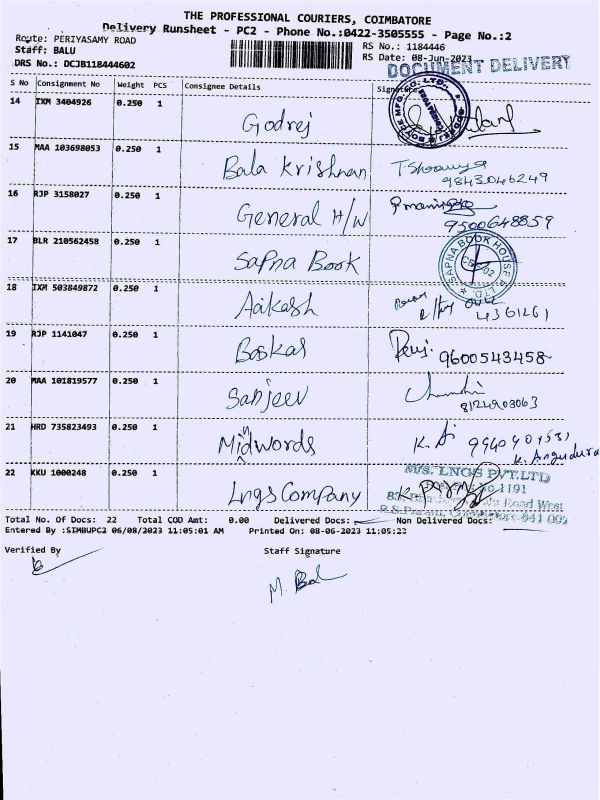 THE PROFESSIONAL COURIERS, COIMBATORE
Delivery Runsheet - PC2 - Phone No.:0422-3505555 - Page No.:2
Route: PERIYASAMY ROAD
RS No.: 1184446
Staff: BALU
RS Date: 08-Jun-2023
DRS No.: DCJB118444602
DOCUMENT DELIVERY
S No Consignment No Weight PCS Consignee Details Signature
14 IXM 3404926 0.250 1 Godrej
15 MAA 103698053 0.250 1 Bala Krishnan
9843046249
16 RJP 3158027 0.250 1 General H/W
9500648859
17 BLR 210562458 0.250 1 Sapna Book
SAPNA BOOK HOUSE P LTD
18 IXM 503849872 0.250 1 Aakash
4361261
19 RJP 1141047 0.250 1 Boskar
9600543458
20 MAA 101819577 0.250 1 Sanjeev
8124903063
21 HRD 735823493 0.250 1 Mindwords
22 KKU 1000248 0.250 1 Lngs Company
M/S. LNGS PVT.LTD
1191
Road West
641 002
Total No. Of Docs: 22 Total COD Amt: 0.00 Delivered Docs: Non Delivered Docs:
Entered By :SIMBUPC2 06/08/2023 11:05:01 AM Printed On: 08-06-2023 11:05:23
Verified By Staff Signature
M. Bal